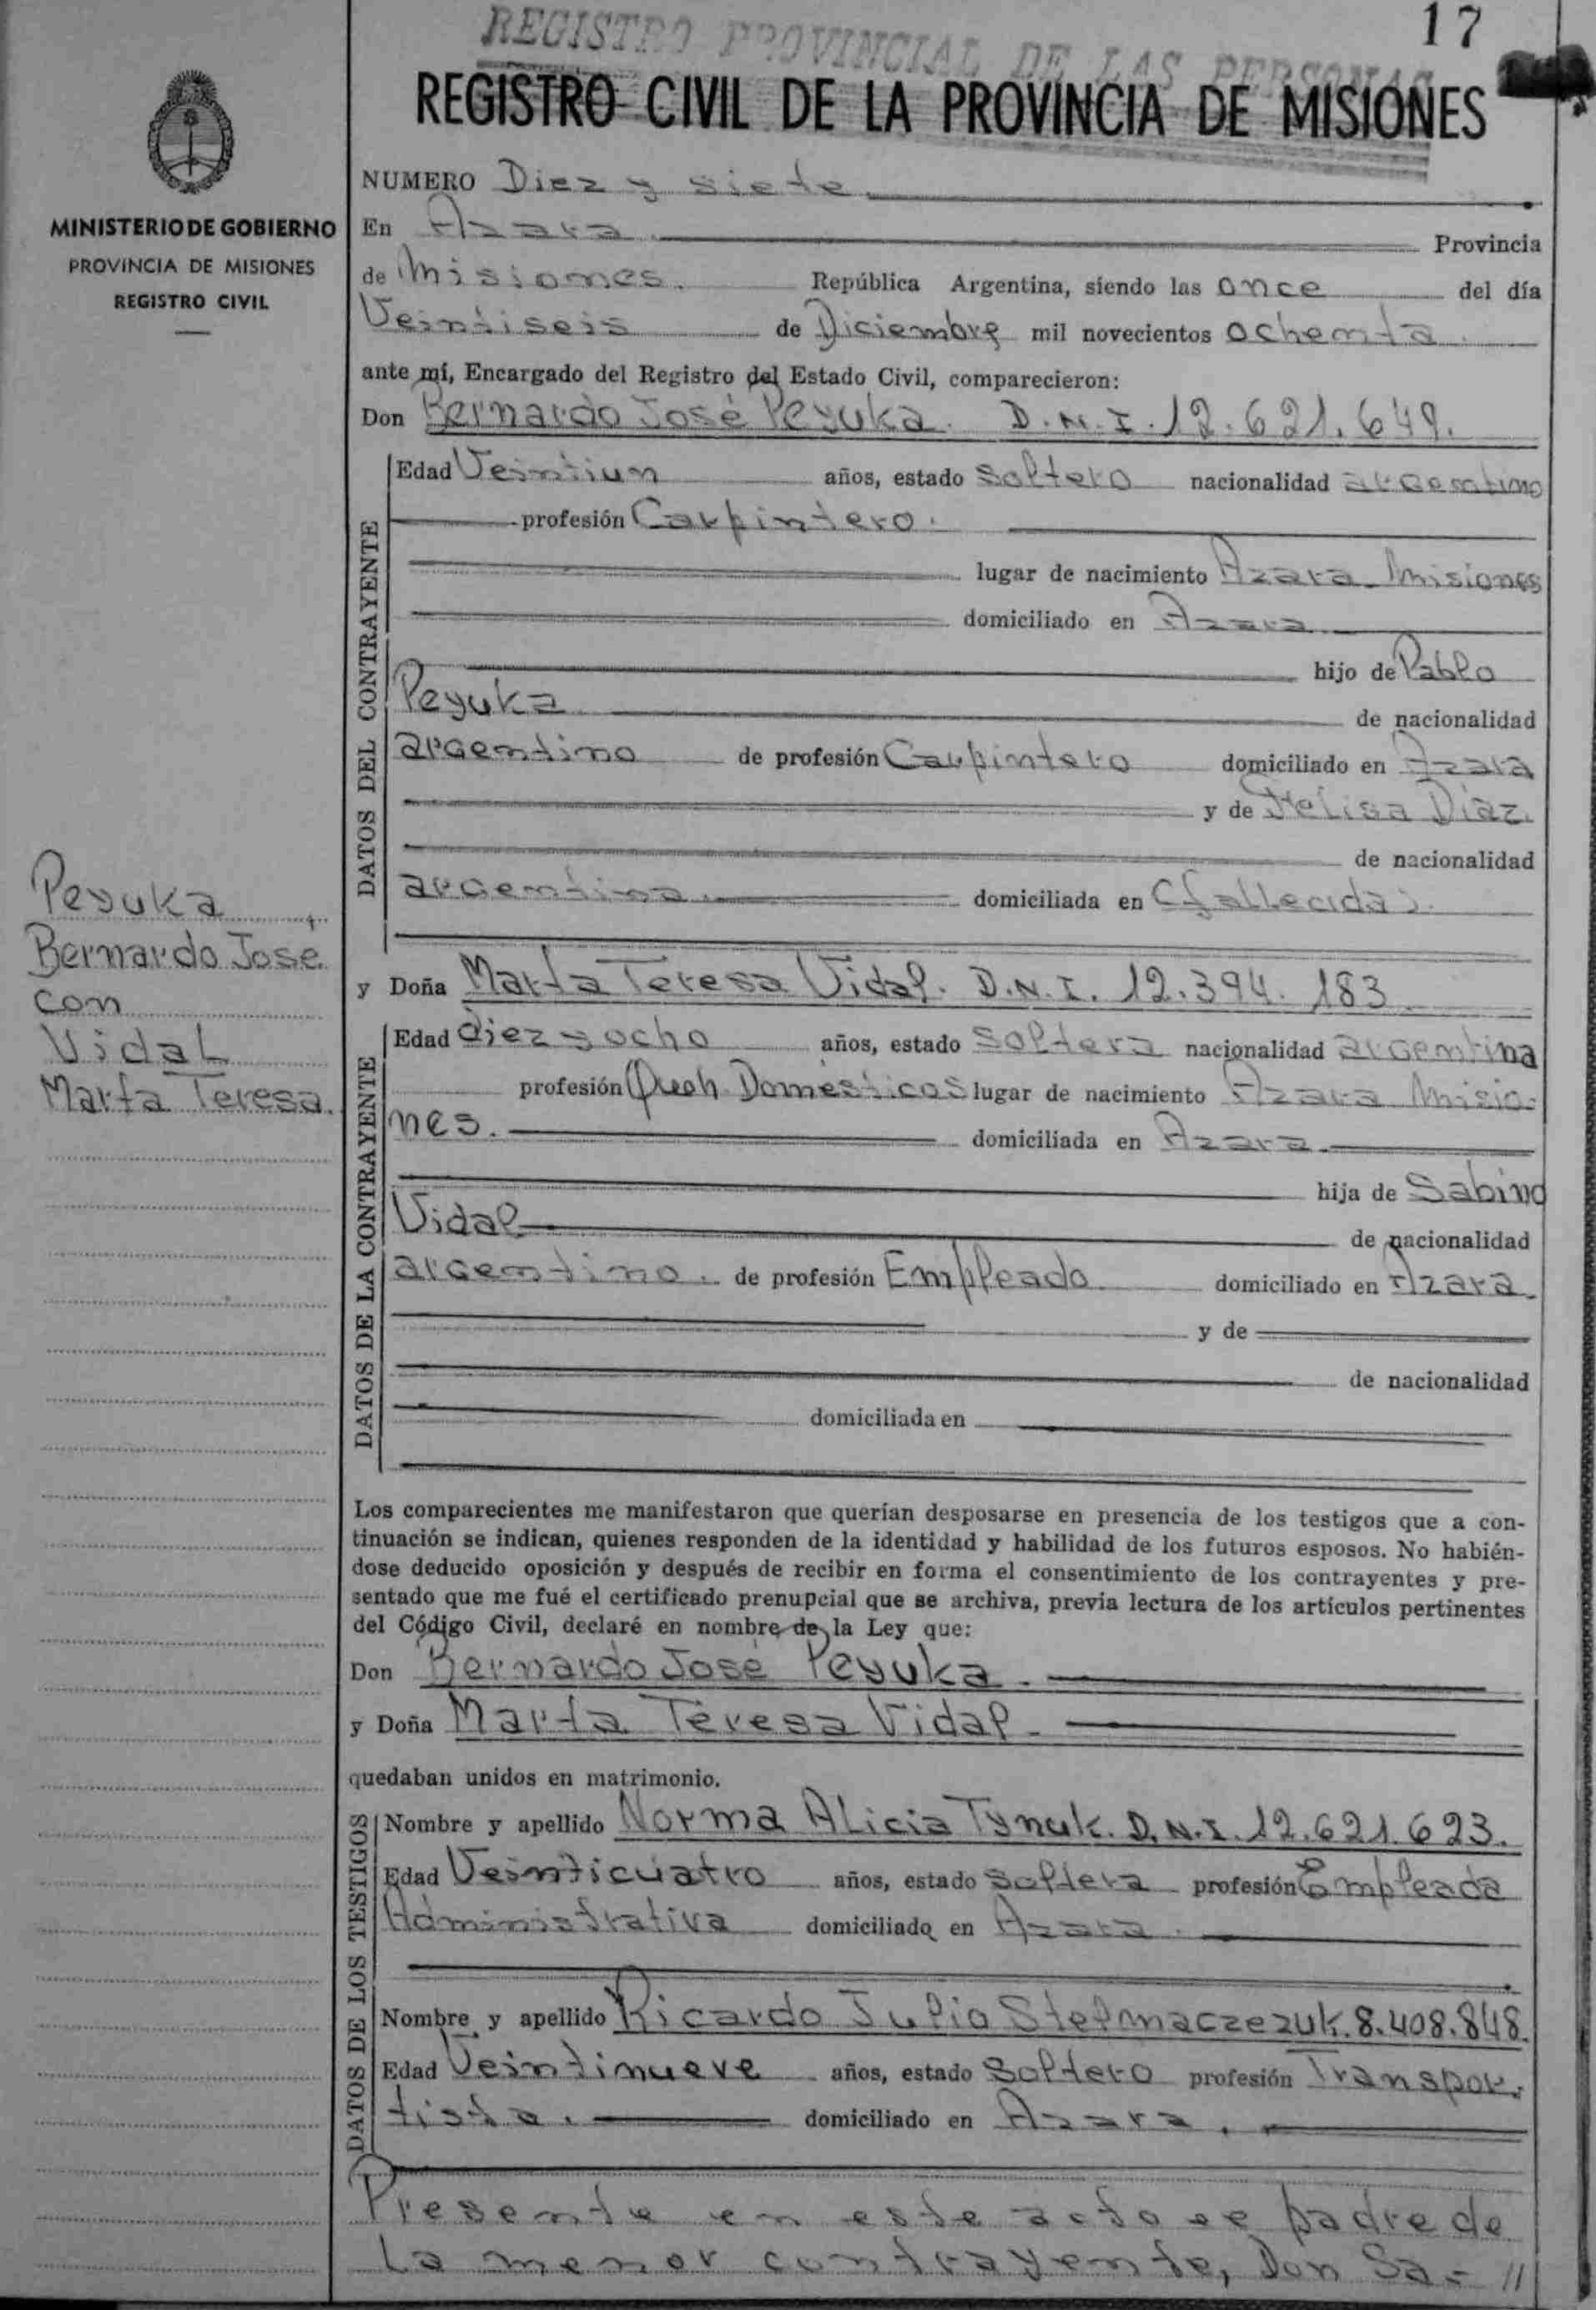 17
REGISTRO PROVINCIAL DE LAS PERSONAS
REGISTRO CIVIL DE LA PROVINCIA DE MISIONES
MINISTERIO DE GOBIERNO
PROVINCIA DE MISIONES
REGISTRO CIVIL
NUMERO Diez y siete
En Azara. Provincia
de Misiones. República Argentina, siendo las once del día
Veintiseis de Diciembre mil novecientos ochenta.
ante mí, Encargado del Registro del Estado Civil, comparecieron:
Don Bernardo José Peyuka. D.N.I. 12.621.649.
DATOS DEL CONTRAYENTE
Edad Veintiun años, estado soltero nacionalidad argentino
profesión Carpintero.
lugar de nacimiento Azara Misiones
domiciliado en Azara
hijo de Pablo
Peyuka de nacionalidad
argentino de profesión Carpintero domiciliado en Azara
y de Felisa Diaz.
de nacionalidad
argentina. domiciliada en (fallecida).
Peyuka
Bernardo Jose
con
Vidal
Marta Teresa.
y Doña Marta Teresa Vidal. D.N.I. 12.394.183
DATOS DE LA CONTRAYENTE
Edad diez y ocho años, estado soltera nacionalidad argentina
profesión Queh. Domésticos lugar de nacimiento Azara Misio-
nes. domiciliada en Azara.
hija de Sabino
Vidal de nacionalidad
argentino. de profesión Empleado domiciliado en Azara.
y de
de nacionalidad
domiciliada en
Los comparecientes me manifestaron que querían desposarse en presencia de los testigos que a con-
tinuación se indican, quienes responden de la identidad y habilidad de los futuros esposos. No habién-
dose deducido oposición y después de recibir en forma el consentimiento de los contrayentes y pre-
sentado que me fué el certificado prenupcial que se archiva, previa lectura de los artículos pertinentes
del Código Civil, declaré en nombre de la Ley que:
Don Bernardo José Peyuka.
y Doña Marta Teresa Vidal.
quedaban unidos en matrimonio.
DATOS DE LOS TESTIGOS
Nombre y apellido Norma Alicia Tynuk. D.N.I. 12.621.623.
Edad Veinticuatro años, estado soltera profesión Empleada
Administrativa domiciliada en Azara.
Nombre y apellido Ricardo Julio Stelmaczezuk. 8.408.848.
Edad Veintinueve años, estado soltero profesión Transpor-
tista. domiciliado en Azara.
Presente en este acto el padre de
la menor contrayente, Don Sa- //